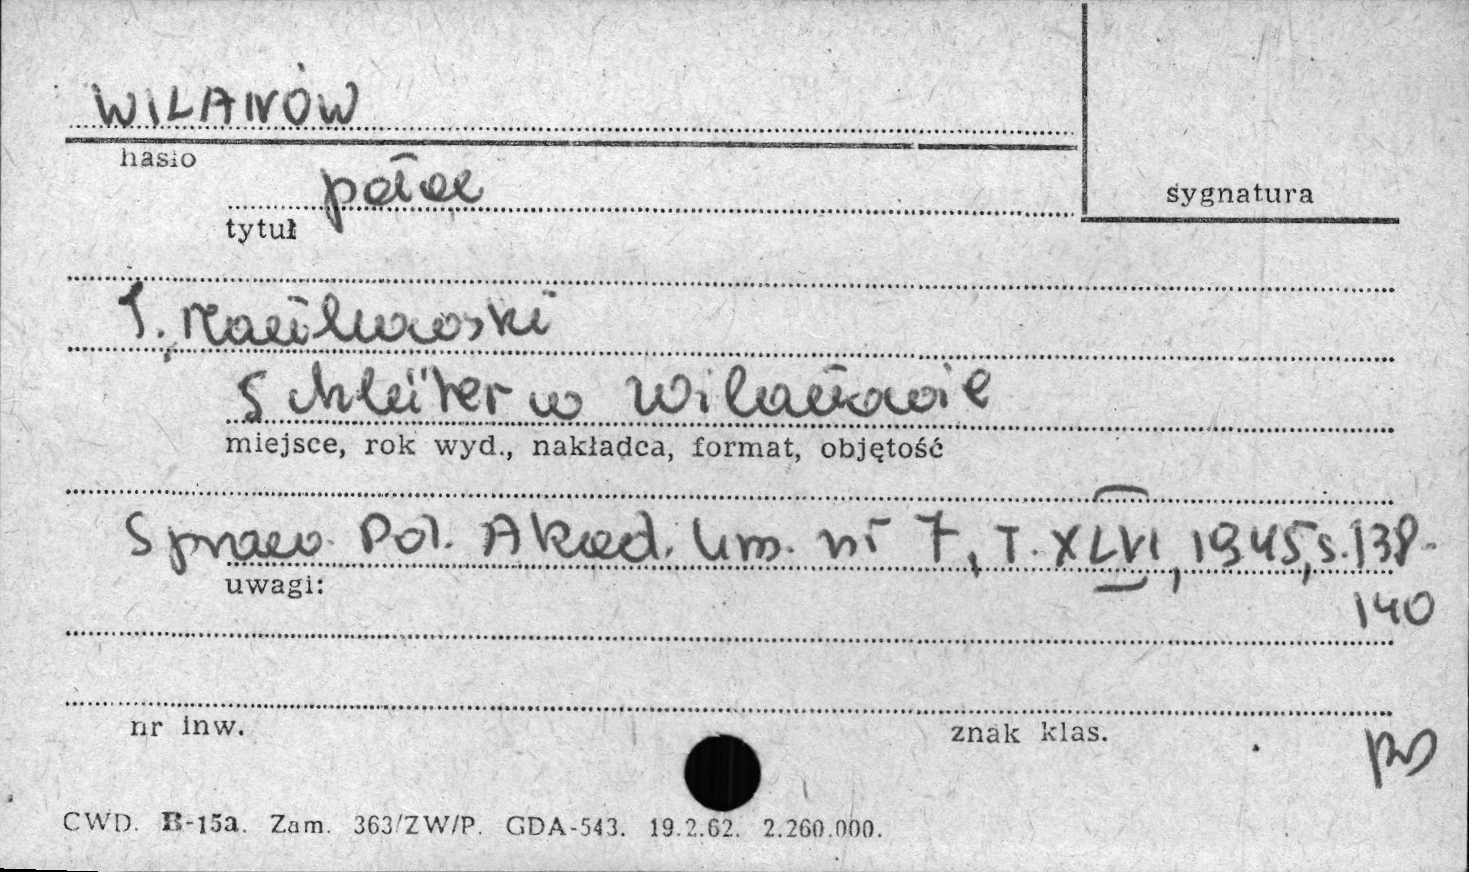 WILANÓW
hasło
pałac
sygnatura
tytuł
T. Mańkowski
Schlüter w Wilanowie
miejsce, rok wyd., nakładca, format, objętość
Spraw. Pol. Akad. Um. nr 7, T. XLVI, 1945, s. 138-
uwagi:
140
nr inw.
znak klas.
CWD. B-15a. Zam. 363/ZW/P. GDA-543. 19.2.62. 2.260.000.